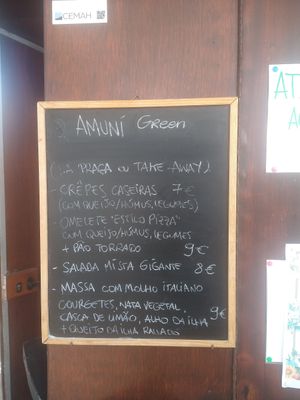 CEMAH
AMUNÍ Green
PRAÇA OU TAKE-AWAY)
- CRÊPES CASEIRAS 7€
(COM QUEIJO/HÚMUS, LEGUMES)
- OMELETE "ESTILO PIZZA"
COM QUEIJO/HÚMUS, LEGUMES
+ PÃO TORRADO 9€
- SALADA MISTA GIGANTE 8€
- MASSA COM MOLHO ITALIANO
COURGETES, NATA VEGETAL, 9€
CASCA DE LIMÃO, ALHO DA ILHA
+ QUEIJO DA ILHA RALADO
AT